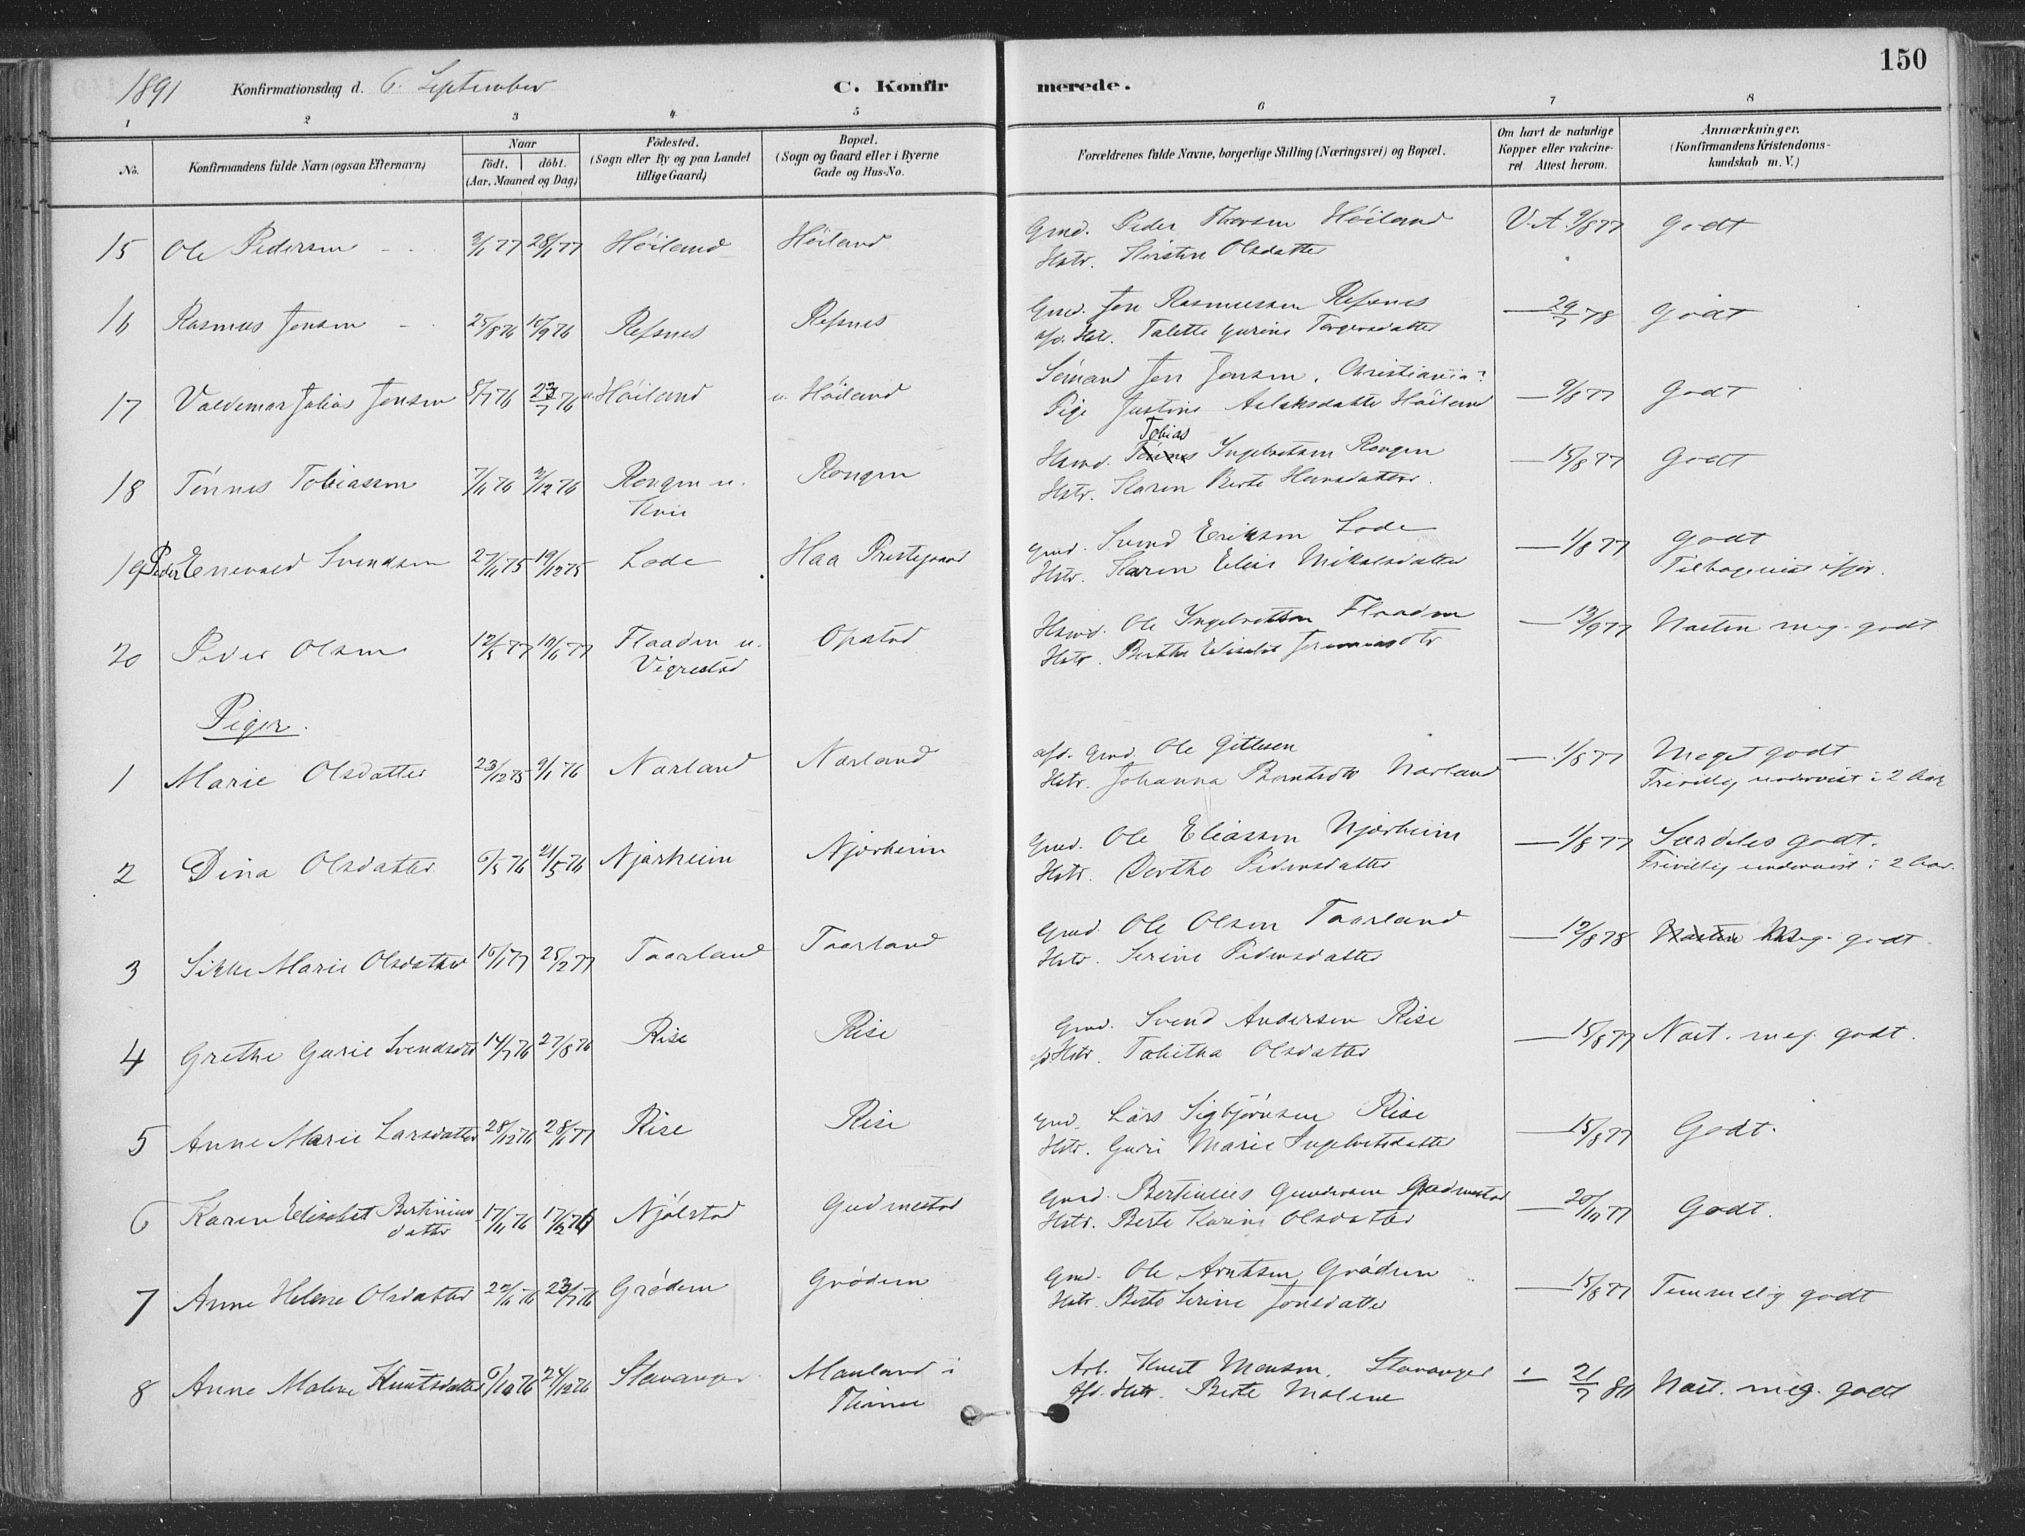 150
1891 Konfirmationsdag d. 6. September C. Konfirmerede.
1 2 3 4 5 6 7 8
No. Konfirmandens fulde Navn (ogsaa Efternavn) Naar födt. döbt. (Aar, Maaned og Dag) Födested. (Sogn eller By og paa Landet tillige Gaard) Bopæl. (Sogn og Gaard eller i Byerne Gade og Hus-No. Forældrenes fulde Navne, borgerlige Stilling (Næringsvei) og Bopæl. Om havt de naturlige Kopper eller vakcineret. Attest herom. Anmærkninger. (Konfirmandens Kristendomskundskab m. V.)
15 Ole Pedersen 28/1 77 Höiland Höiland Gmd. Peder Thorsen Höiland V. A. 9/8 77 Godt
Hstr. Kirsten Olsdatter
16 Rasmus Jonsen 25/8 76 10/9 76 Refsnes Refsnes Gmd. Jon Rasmussen Refsnes — 29/7 78 Godt
afd. Hstr. Talette Gurine Torgersdatter
17 Valdemar Julius Jensen 8/7 76 23/7 76 u. Höiland u. Höiland Sömand Jens Jensen, Christiania? — 9/8 77 Godt
Pige Justine Aslaksdatter Höiland
18 Tönnes Tobiassen 7/11 76 3/12 76 Rongen u. Kvie Rongen Hsmd. Tobias Ingebretsen Rongen — 15/8 77 Godt
Hstr. Karen Berte Hansdatter.
19 Peder Enevald Svendsen 27/11 75 19/12 75 Lode Haa Prestegaard Gmd. Svend Eriksen Lode — 1/8 77 Godt
Hstr. Karen Elise Mikalsdatter Tilbagevist ifjor.
20 Peder Olsen 12/5 77 19/6 77 Flaaden u. Vigrestad Opstad Hsmd. Ole Ingebretsen Flaaden — 12/9 77 Næsten meg. godt
Hstr. Berthe Elisabet
Piger.
1 Marie Olsdatter 23/12 75 9/1 76 Nærland Nærland afd. Gmd. Ole Gittesen — 1/8 77 Meget godt
Hstr. Johanna Berntsdtr Nærland Frivillig undervist i 2 Aar
2 Dina Olsdatter 6/5 76 21/5 76 Njærheim Njærheim Gmd. Ole Eliassen Njærheim — 1/8 77 Særdeles godt.
Hstr. Berthe Pedersdatter Frivillig undervist i 2 Aar.
3 Sikke Marie Olsdatter 16/1 77 25/2 77 Taarland Taarland Gmd. Ole Olsen Taarland — 12/8 78 Næsten Meg. godt.
Hstr. Serine Pedersdatter
4 Grethe Gurie Svendsdtr 14/7 76 27/8 76 Rise Rise Gmd. Svend Andersen Rise — 15/8 77 Næst. meg. godt.
Hstr. Tabitha Olsdatter
5 Anne Marie Larsdatter 28/12 76 28/1 77 Rise Rise Gmd. Lars Sigbjörnsen Rise — 15/8 77 Godt.
Hstr. Guri Marie Ingebretsdatter
6 Karen Elisabet Bertiniusdatter 17/11 76 17/12 76 Njölstad Gudmestad Gmd. Bertinius Gundersen Gudmestad — 20/10 77 Godt.
Hstr. Berte Karine Olsdatter
7 Anne Helene Olsdatter 22/6 76 23/7 76 Grödem Grödem Gmd. Ole Arntsen Grödem — 15/8 77 Temmelig godt
Hstr. Berte Serine Jonsdatter
8 Anne Malene Knutsdatter 6/10 76 24/12 76 Stavanger Mauland i Thime Arb. Knut Monsen, Stavanger — 21/7 80 Næst. meg. godt
afd. Hstr. Berte Malene